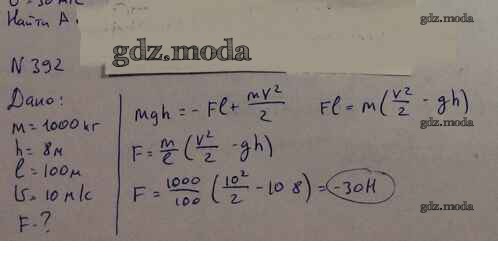 Найти А.
gdz.moda
gdz.moda
N 392
Дано:
m = 1000 кг
h = 8м
l = 100м
υ = 10 м/с
F - ?
mgh = - Fl + mv²/2
Fl = m(v²/2 - gh)
gdz.moda
F = m/l (v²/2 - gh)
F = 1000/100 (10²/2 - 10 8) = -30H
gdz.moda